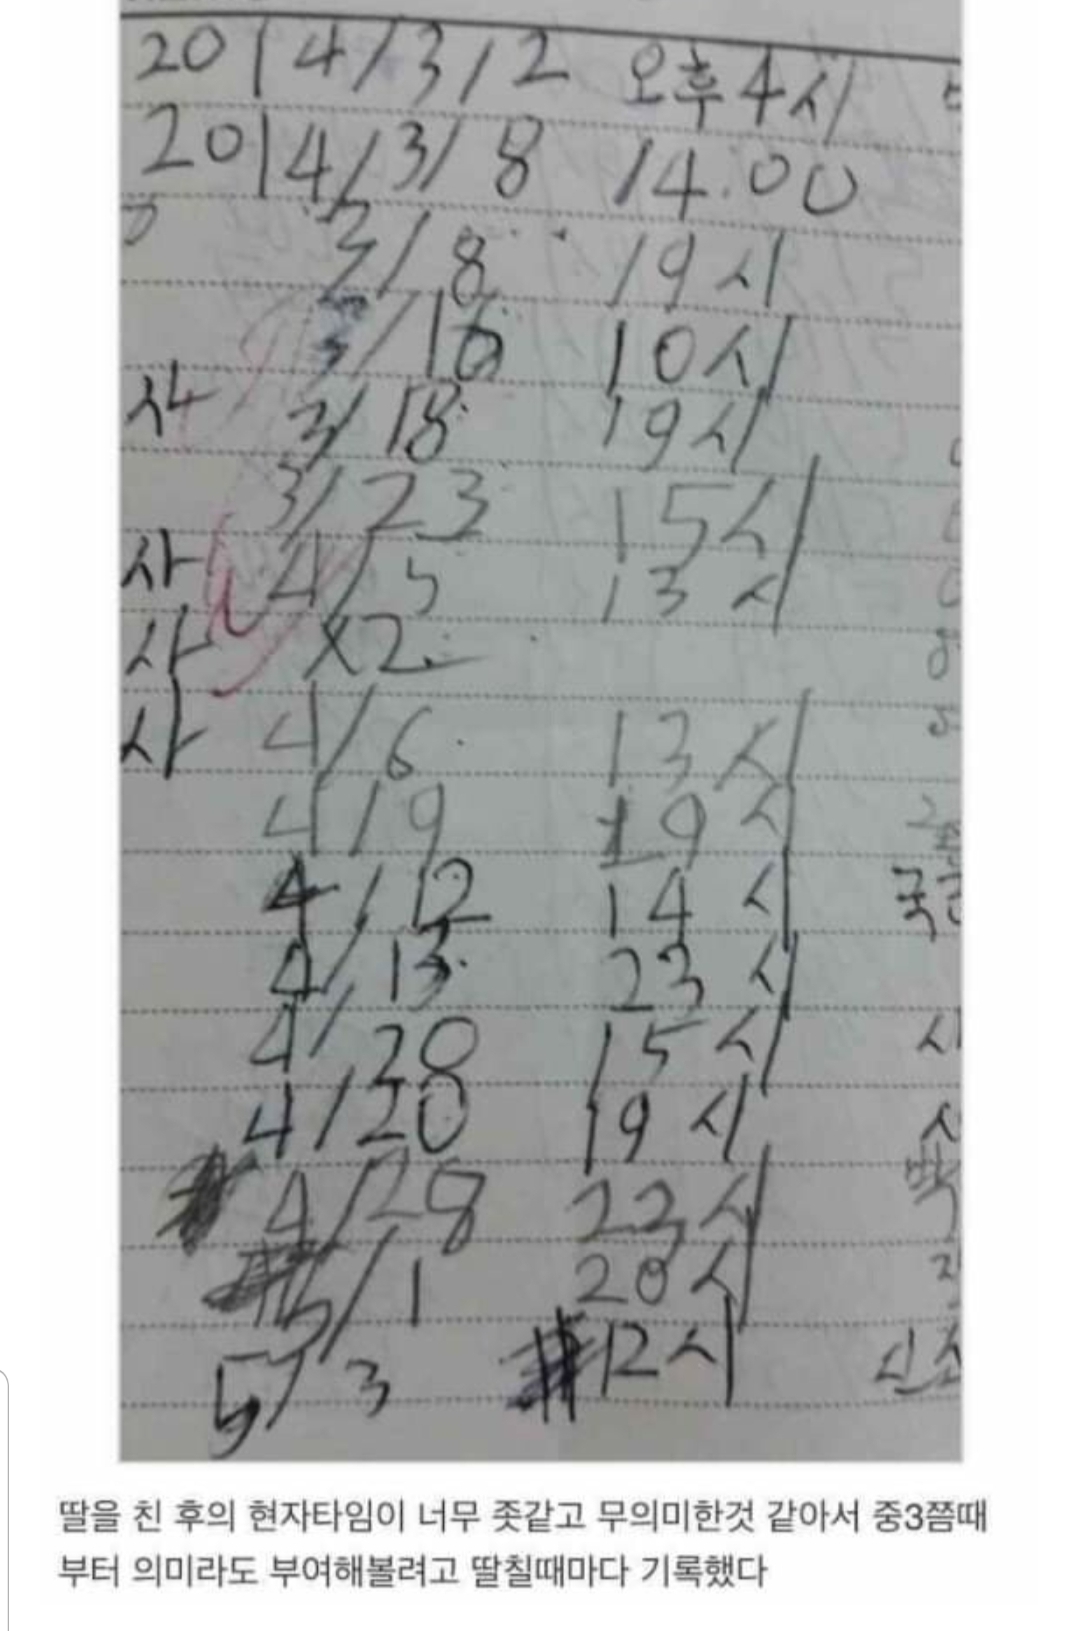 2014/3/2 오후4시
2014/3/8 14.00
3/8 19시
3/16 10시
사 3/18 19시
3/23 15시
사 4/5 13시
사 X2
사 4/6 13시
4/9 19시
4/12 14시
4/13 23시
4/20 15시
4/20 19시
4/28 22시
5/1 20시
5/3 12시
딸을 친 후의 현자타임이 너무 좃같고 무의미한것 같아서 중3쯤때
부터 의미라도 부여해볼려고 딸칠때마다 기록했다